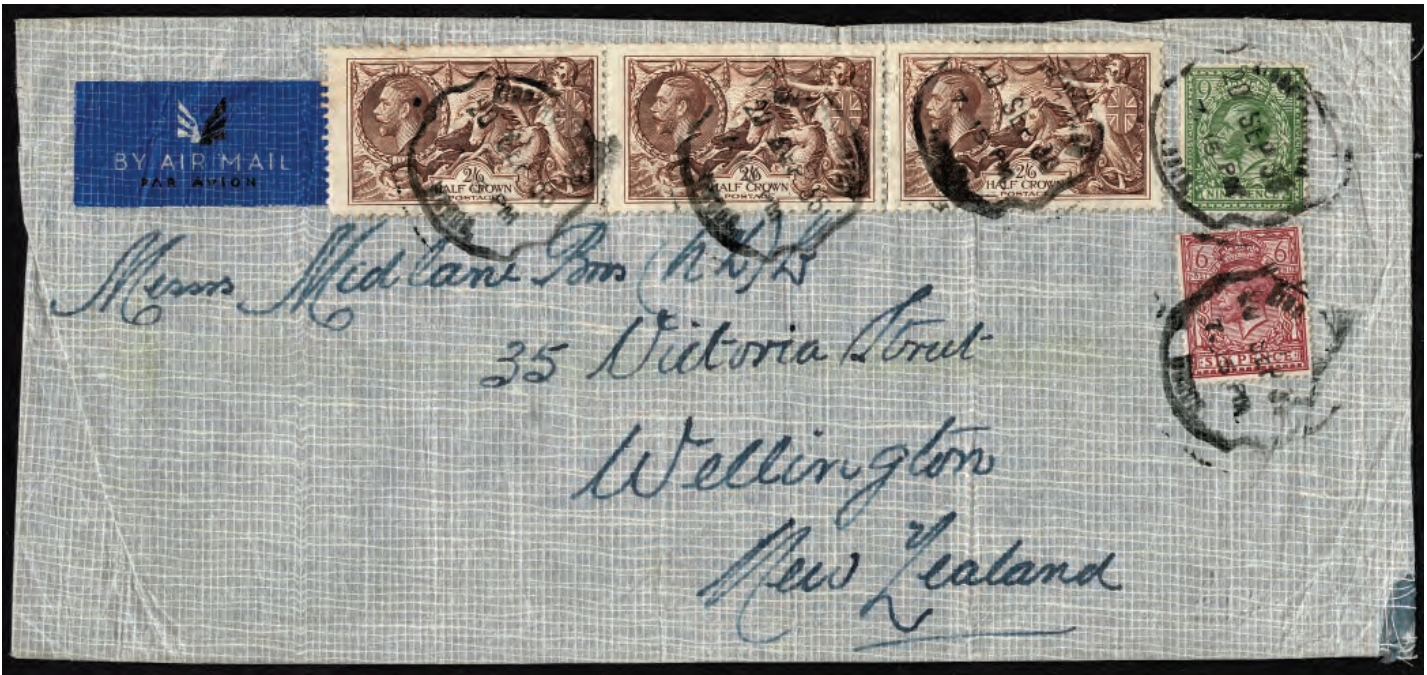 BY AIR MAIL
PAR AVION
2/6
HALF CROWN
POSTAGE
2/6
HALF CROWN
POSTAGE
2/6
HALF CROWN
POSTAGE
9
NINEPENCE
6 6
SIXPENCE
Messrs Midlane Bros (N.Z.) Ld
35 Victoria Street
Wellington
New Zealand